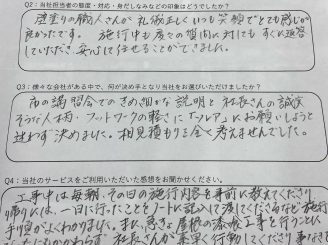 Q2：当社担当者の態度・対応・身だしなみなどの印象はどうでしたか？
塗りの職人さんが礼儀正しくいつも笑顔でとても感じが
良かったです。施行中も度々の質問に対してもすぐに返答
していただき、安心して任せることができました。
Q3：様々な会社がある中で、何が決め手となり当社をお選びいただけましたか？
市の講習会でのきめ細かな説明と社長さんの誠実
そうな人柄・フットワークの軽さに お願いしようと
迷わず決めました。相見積もりは全く考えませんでした。
Q4：当社のサービスをご利用いただいた感想をお聞かせください。
工事中は毎朝、その日の施行内容を事前に教えてくださり
帰りには、一日に行ったことをノートに記入して渡してくださるなど施行
手順がよくわかりました。また、急きょ屋根の添接工事を行うことに
社長さんが素早く行動してくださり